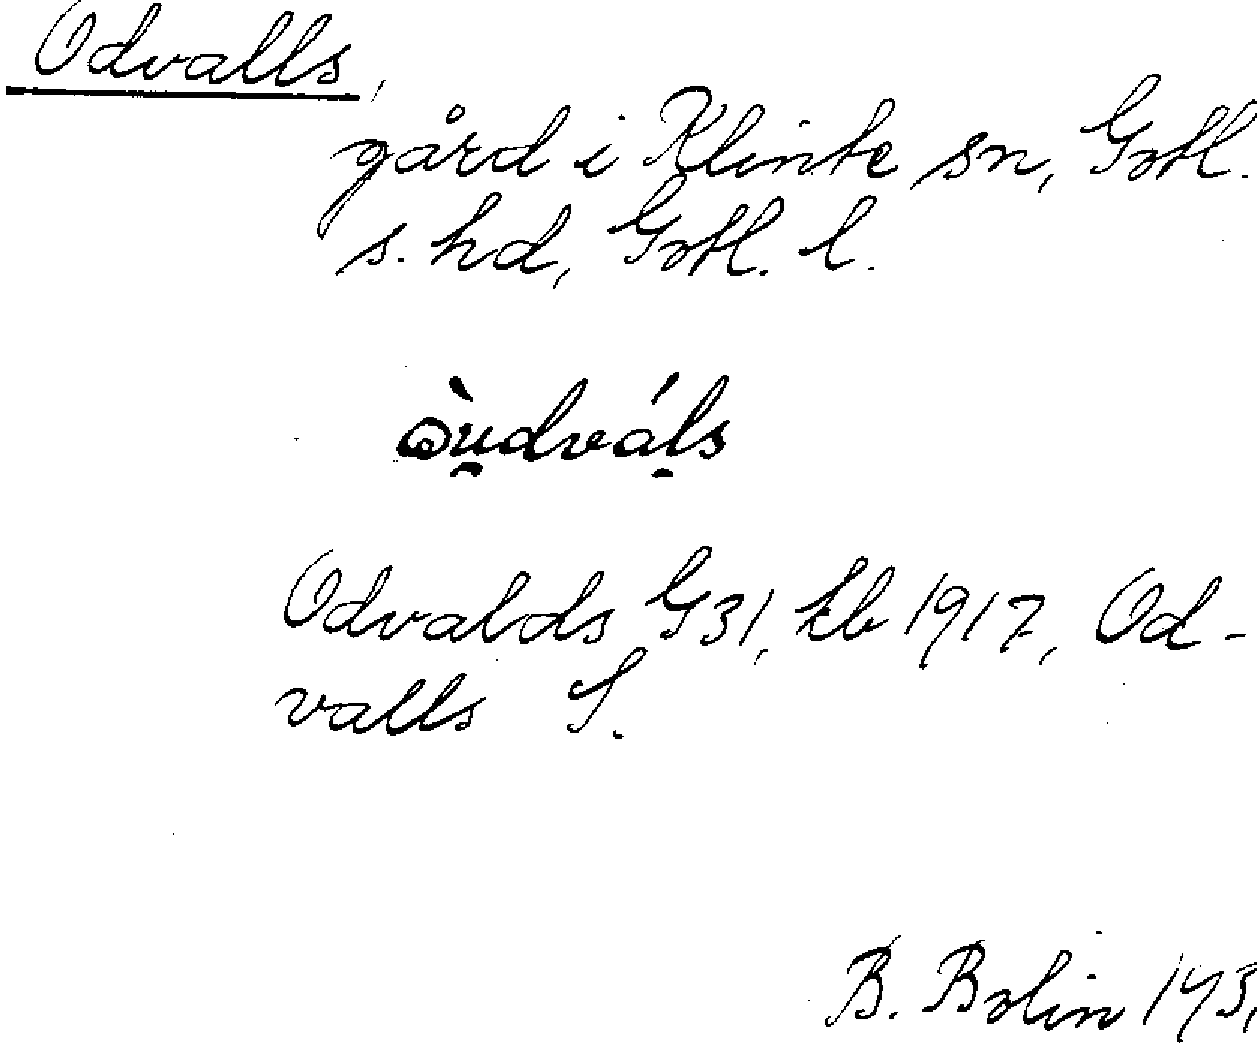 Odvalls,
gård i Klinte sn, Gotl.
s. hd, Gotl. l.
Odvalds G31, kb 1917, Od-
valls S.
B. Bolin 193